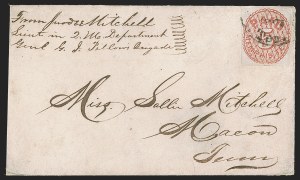 From Mitchell
Lieut in Q. M. Department
Genl G. J. Pillows Brigade
Miss. Sallie Mitchell
Macon
Tenn